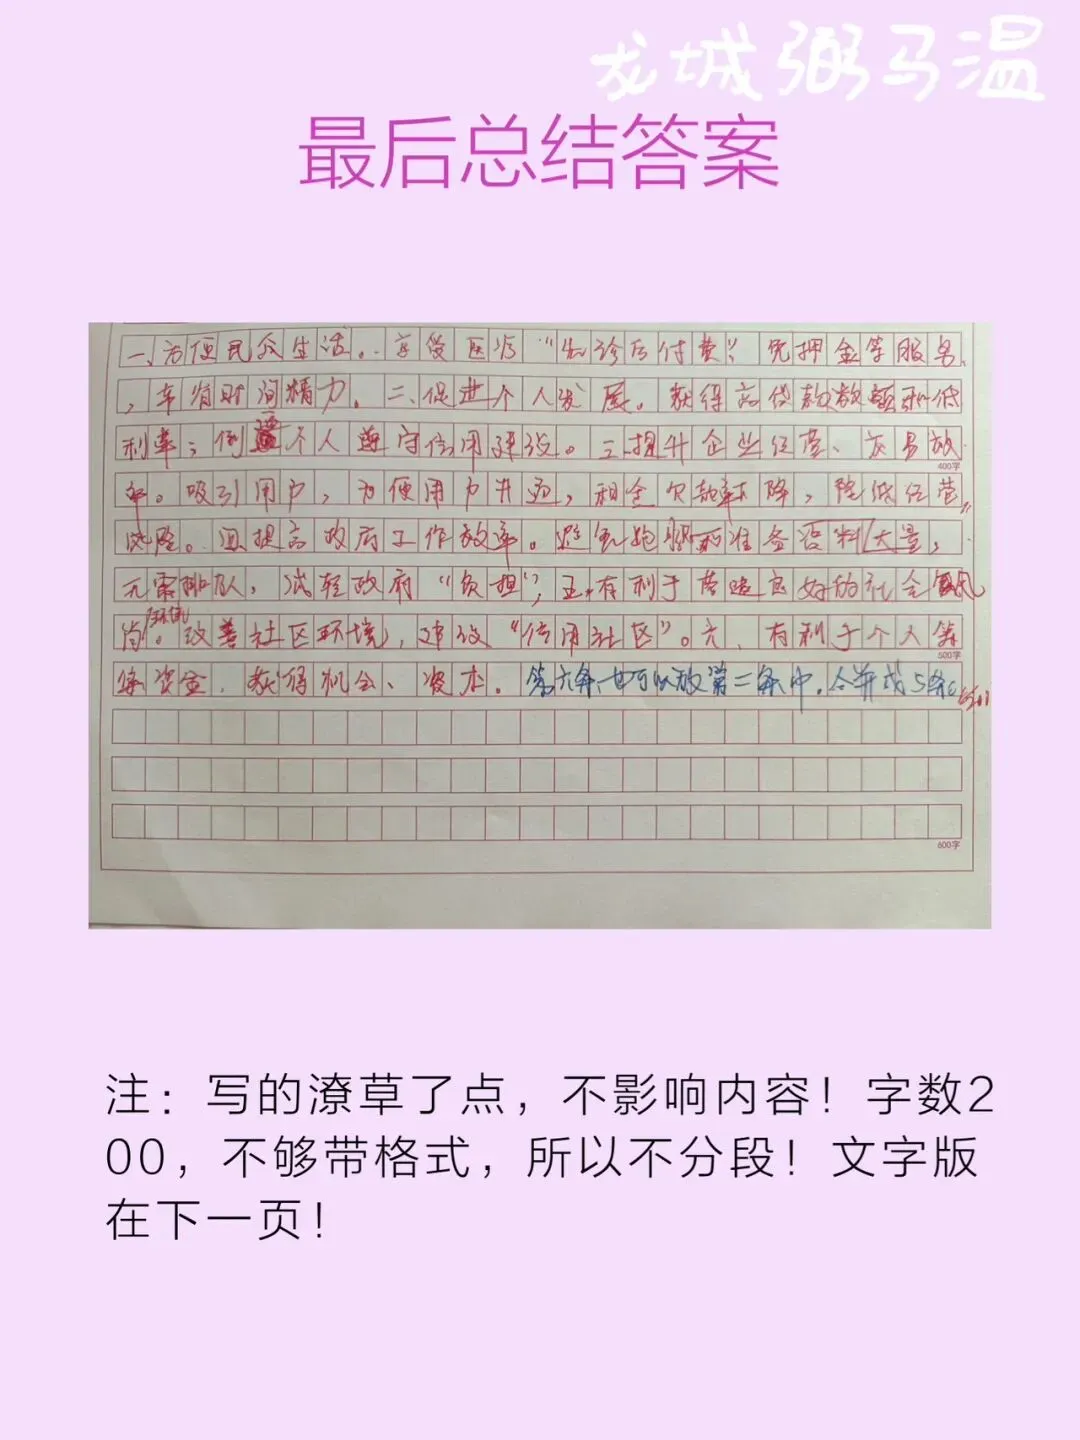 龙城弼马温
最后总结答案
一、方便民众生活。享受医疗“先诊后付费”、免押金等服务,
,节省时间精力。二、促进个人发展。获得高贷款数额和低
利率;倒逼个人遵守信用建设。三、提升企业经营、交易效
率。吸引用户,方便用户开通,租金欠款率下降,降低经营
风险。四、提高政府工作效率。避免跑腿和准备资料大量,
无需排队,减轻政府“负担”;五、有利于营造良好的社会风
尚。改善社区环境,建设“信用社区”。六、有利于个人筹
资金,获得机会、资本。第六条、也可以放第二条中,合并成5条。
400字
500字
600字
注:写的潦草了点,不影响内容!字数2
00,不够带格式,所以不分段!文字版
在下一页!